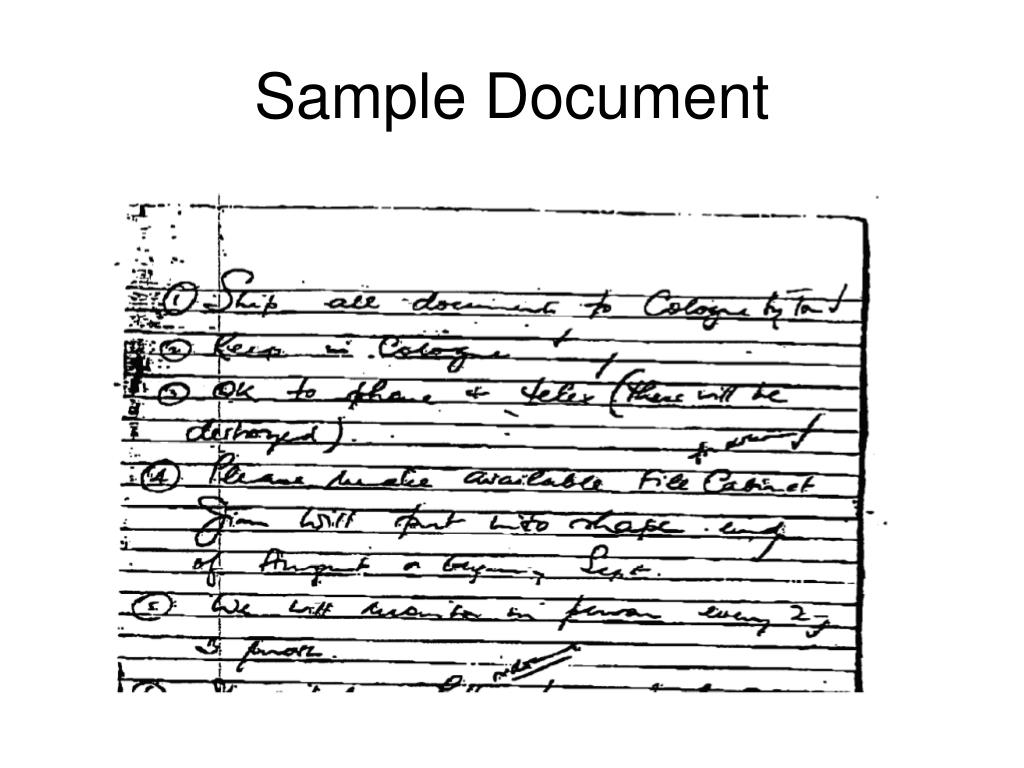 Sample Document
① Ship all document to Cologne by
② Keep in Cologne
③ OK to phone + telex (these will be
destroyed).
④ Please make available File Cabinet
Jim will put into shape end
of August or beginn, Sept.
⑤ We will monitor in person every 2-
3